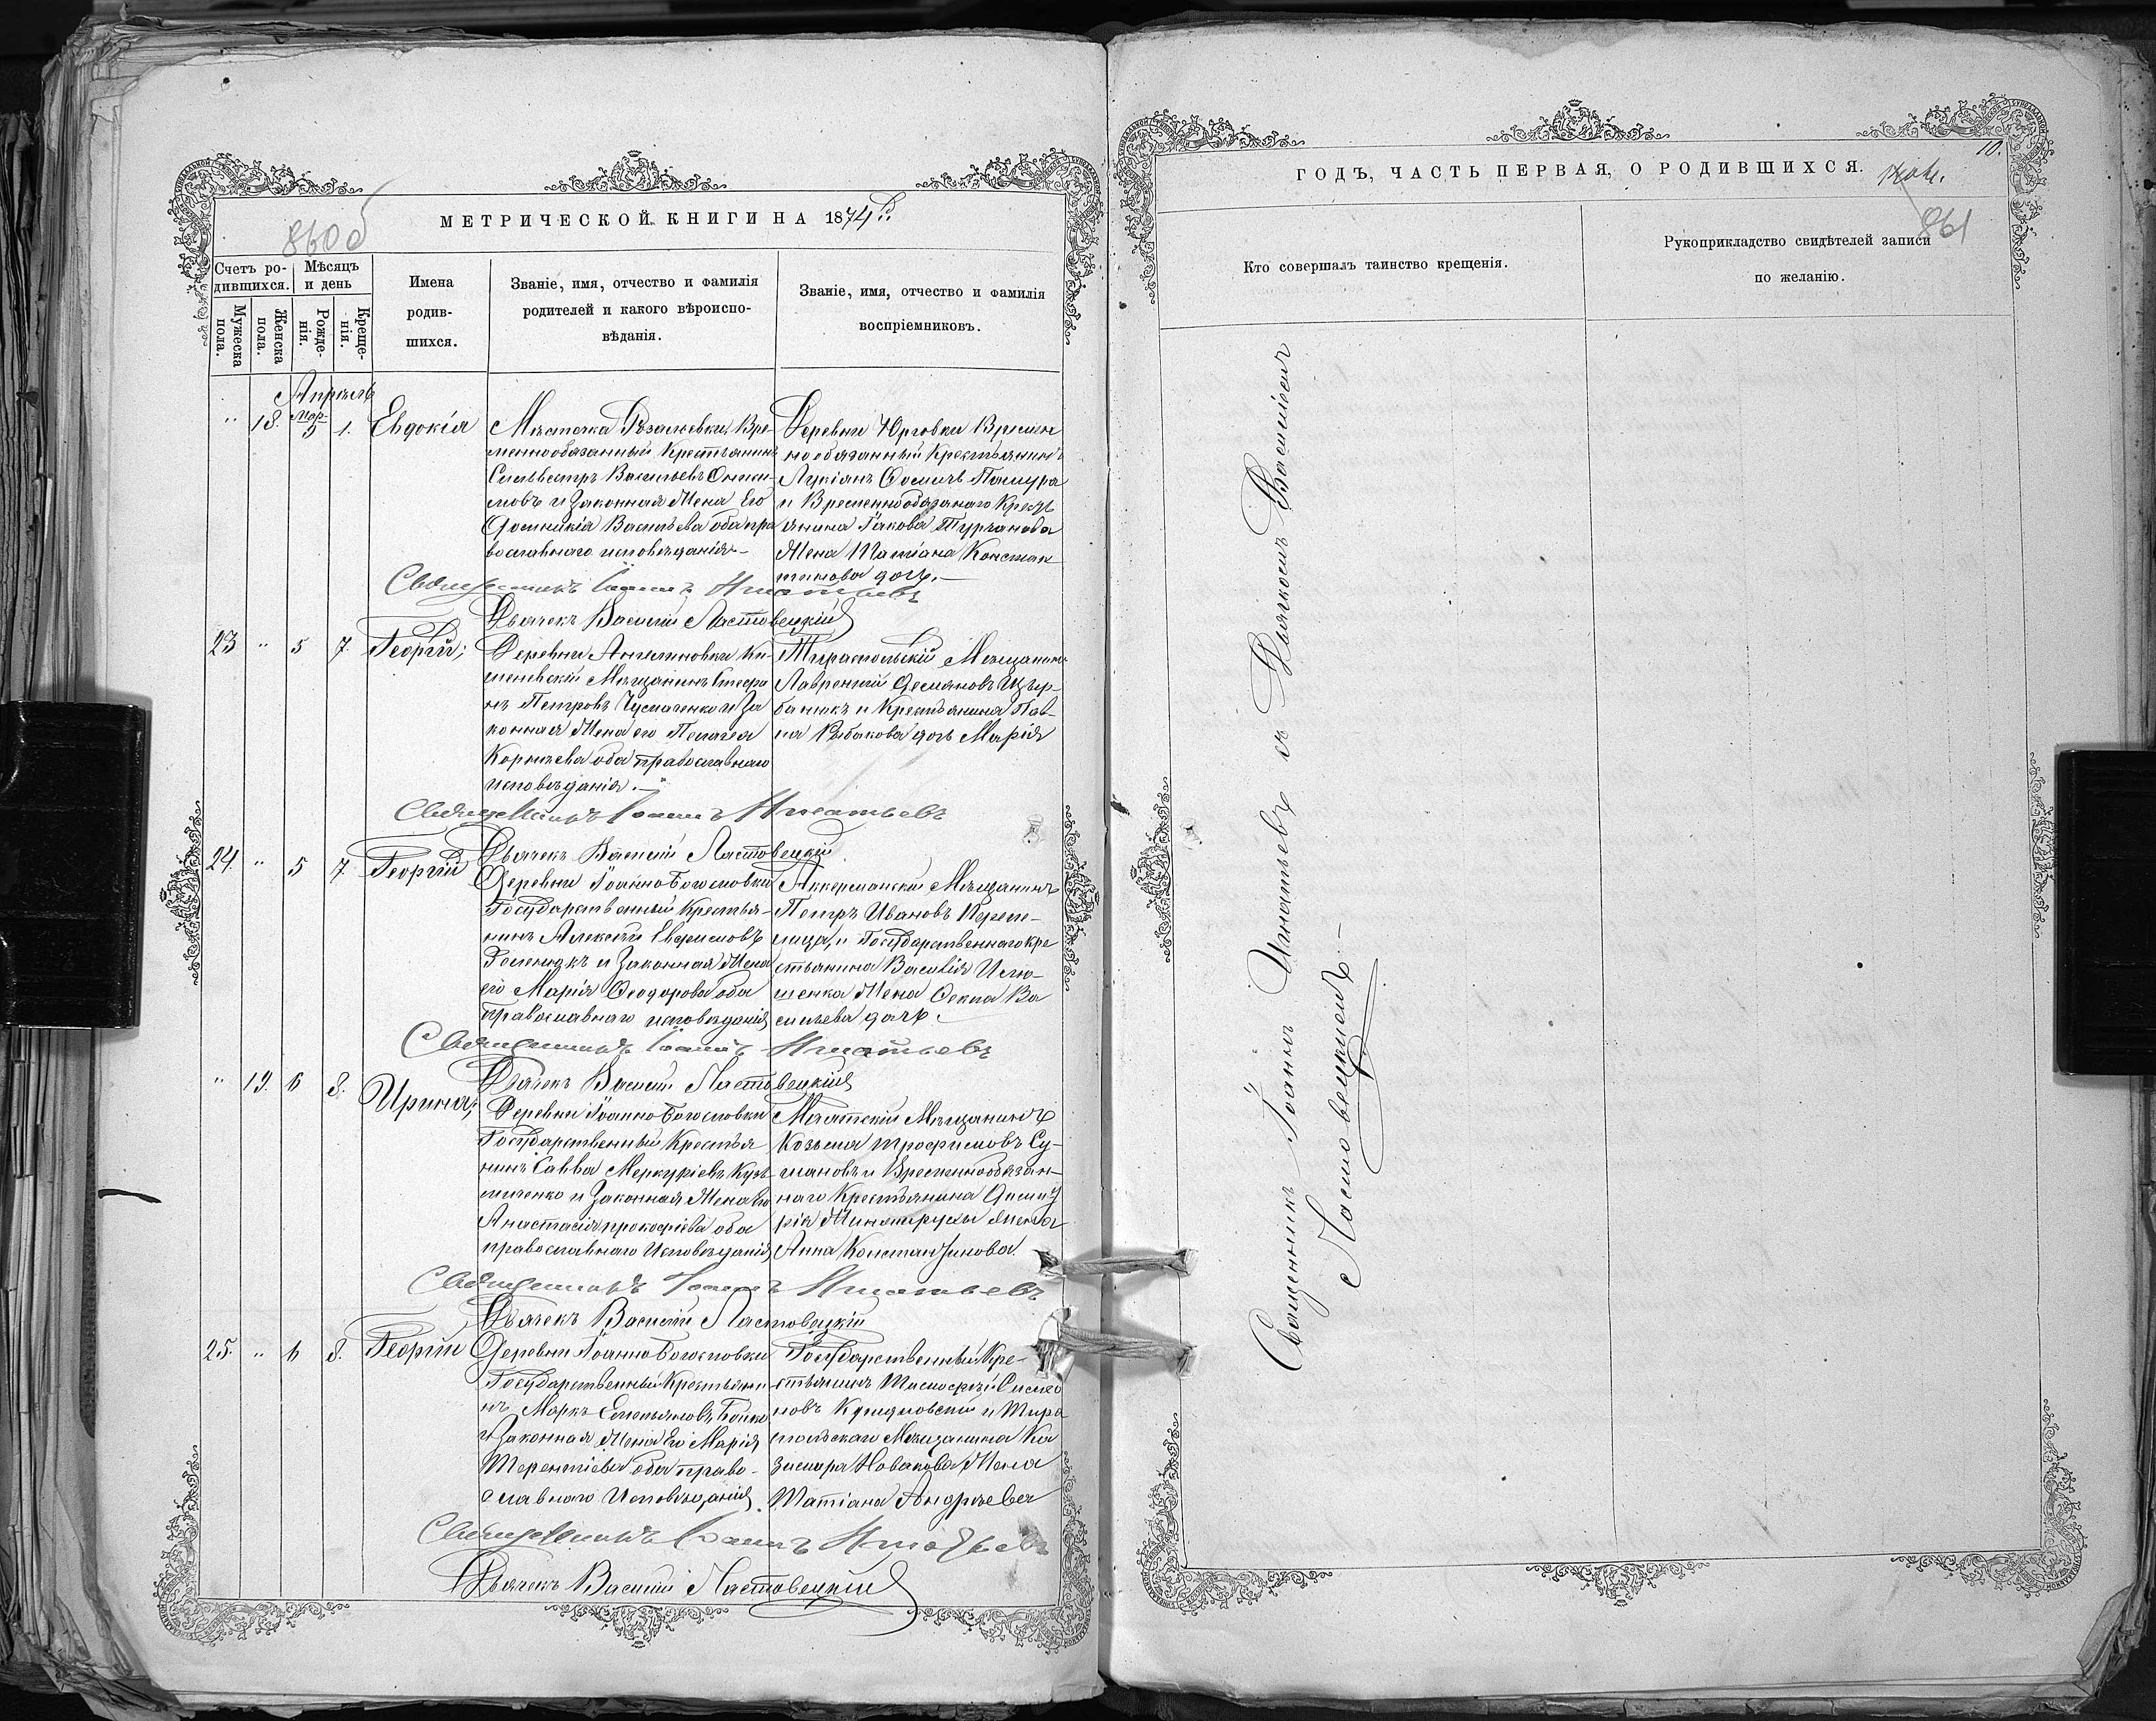 МЕТРИЧЕСКОЙ КНИГИ НА 1874
860 об
Счетъ ро-
дившихся.
Мужеска
пола.
Женска
пола.
Мѣсяцъ
и день
Рожде-
нія.
Креще-
нія.
Имена
родив-
шихся.
Званіе, имя, отчество и фамилія
родителей и какого вѣроиспо-
вѣданія.
Званіе, имя, отчество и фамилія
воспріемниковъ.
Апрѣль
" 18. Мар. 1. Евдокія
Мѣстечка Вре-
меннообязанный Крестьянинъ
Сильвестръ Васильевъ
и Законная Жена Его
Домникія Васильева оба пра
вославнаго исповѣданія
Деревни Юрговки Времен
нообязанный Крестьянинъ
Лукіанъ
и Временнообязаннаго Крест
янина Іакова Турчанова
Жена Татіана Констан
тинова дочь.
Священникъ Іоаннъ Игнатьевъ
Дьячекъ Василій Ластовецкій
23 " 5 7. Георгій;
Деревни Ангелиновки Ки-
шеневскій Мѣщанинъ Стефа
нъ Петровъ Чумаченко и За
конная Жена его Пелагея
Корнѣева оба православнаго
исповѣданія.
Тираспольскій Мѣщанинъ
Лаврентій Демяновъ Щер-
баникъ и Крестьянина Пав-
ла Рыбакова дочь Марія
Священникъ Іоаннъ Игнатьевъ
Дьячекъ Василій Ластовецкій
24 " 5 7. Георгій
Деревни Іоанно Богословки
Государственный Крестья-
нинъ Алексѣй
и Законная Жена
его Марія Феодорова оба
Православнаго исповѣданія
Аккерманскій Мѣщанинъ
Петръ Ивановъ
и Государственнаго кре
стьянина Василія
Жена Фекла Ва
сильева дочь.
Священникъ Іоаннъ Игнатьевъ
Дьячекъ Василій Ластовецкій
" 19. 6 8. Ирина;
Деревни Іоанно Богословки
Государственный Крестья
нинъ Савва Меркуріевъ Кузь-
миченко и Законная Жена Его
Анастасія Прокофіева оба
православнаго Исповѣданія
Мѣщанинъ
Козьма Трофимовъ Су-
мановъ и Временнообязан-
наго Крестьянина Димит
рія Жена
Анна Константинова.
Священникъ Іоаннъ Игнатьевъ
Дьячекъ Василій Ластовецкій
25. " 6 8. Георгій
Деревни Іоанно Богословки
Государственный Крестьяни
нъ Маркъ Емельяновъ Бойко
и Законная Жена Его Марія
Терентіева оба право-
славнаго Исповѣданія.
Государственный Кре-
стьянинъ Тимофей Симео
новъ и Тира
спольскаго Мѣщанина Ка
зимира Новакова Жена
Татіана Андреева
Священникъ Іоаннъ Игнатьевъ
Дьячекъ Василій Ластовецкій
ГОДЪ, ЧАСТЬ ПЕРВАЯ, О РОДИВШИХСЯ.
10.
861
Кто совершалъ таинство крещенія.
Рукоприкладство свидѣтелей записи
по желанію.
Священникъ Іоаннъ Игнатьевъ съ Дьячкомъ Василіемъ
Ластовецкимъ